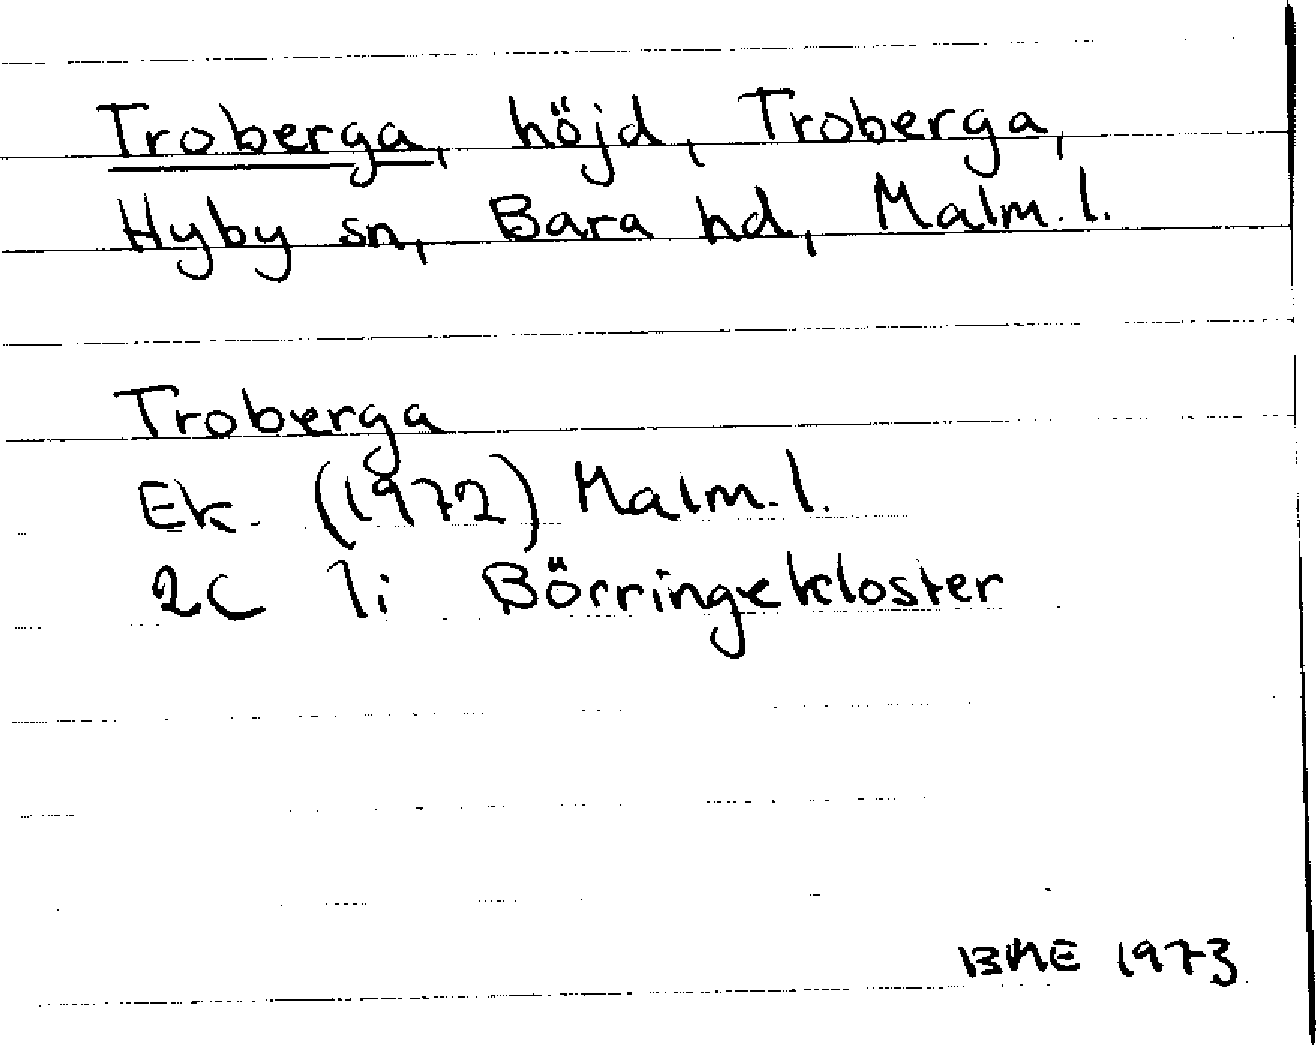 Troberga, höjd, Troberga,
Hyby sn, Bara hd, Malm. l.
Troberga
Ek. (1972) Malm. l.
2C 1i Börringekloster
1973